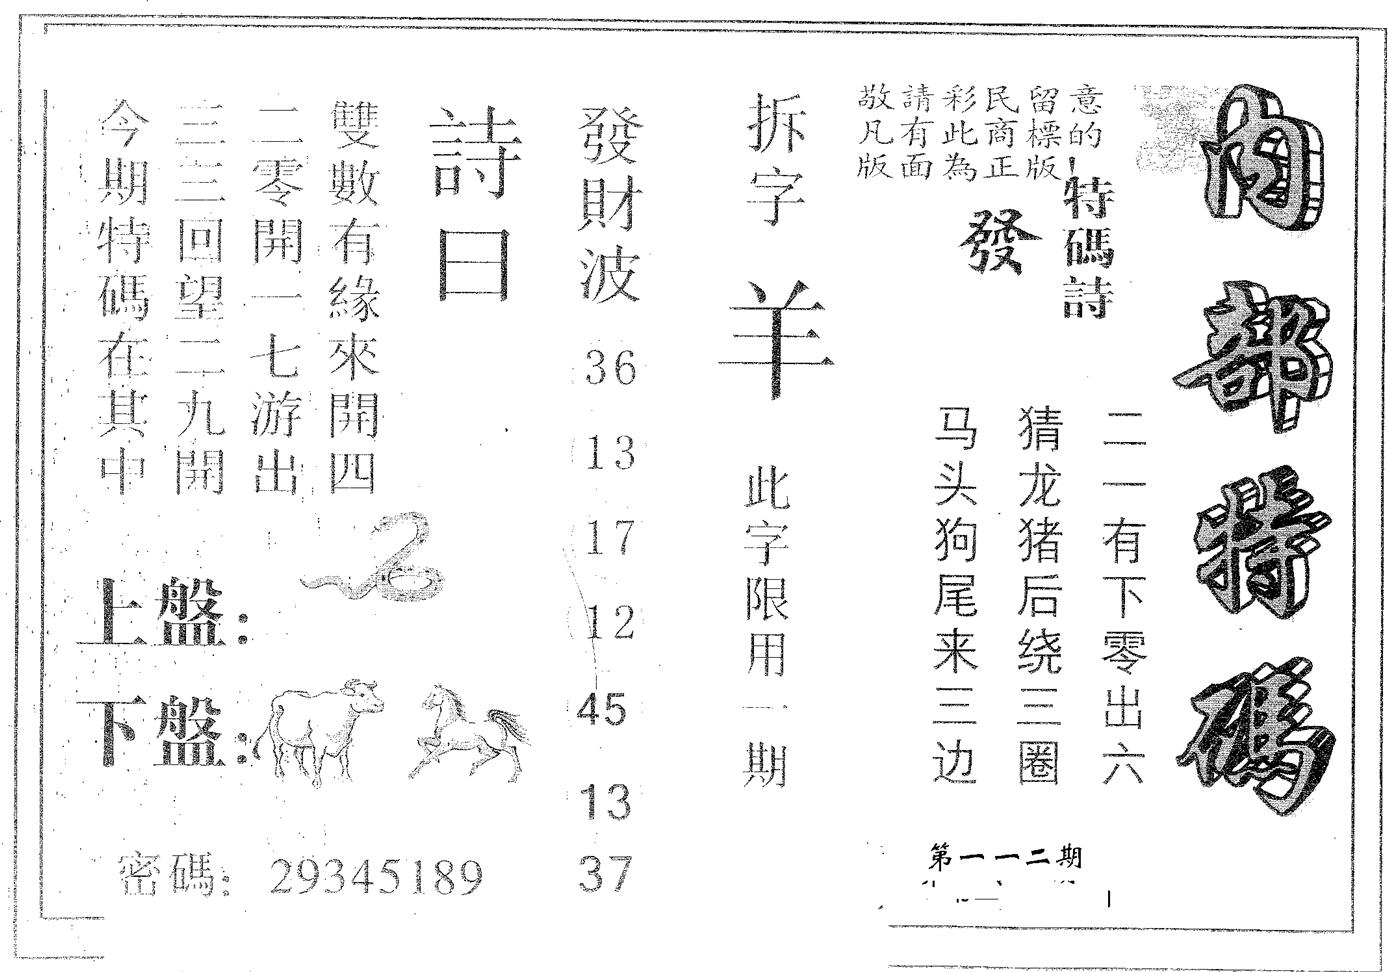 内部特碼
敬請彩民留意
凡有此商標的
版面為正版!
特碼詩
發
二一有下零出六
猜龙猪后绕三圈
马头狗尾来三边
第一一二期
拆字
羊
此字限用一期
發財波
36
13
17
12
45
13
37
詩曰
雙數有緣來開四
二零開一七游出
三三回望二九開
今期特碼在其中
上盤:
下盤:
密碼: 29345189